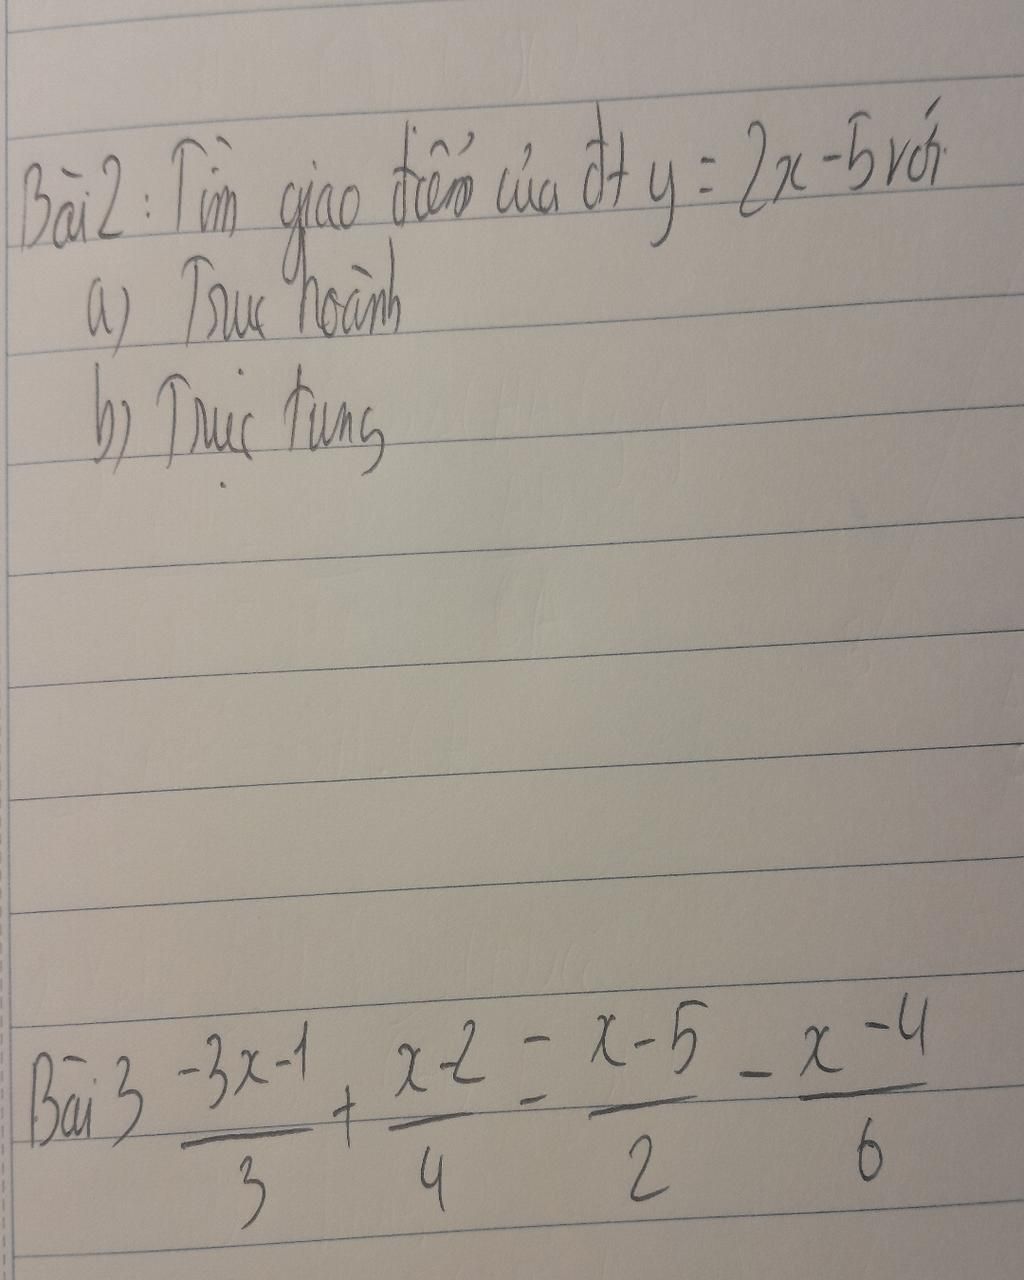 Bài 2: Tìm giao điểm của đt y = 2x - 5 với
a) Trục hoành
b) Trục tung
Bài 3 (-3x-1)/3 + (x-2)/4 = (x-5)/2 - (x-4)/6